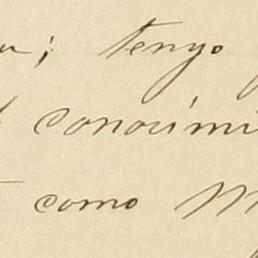 ; tengo
conocimi
como M